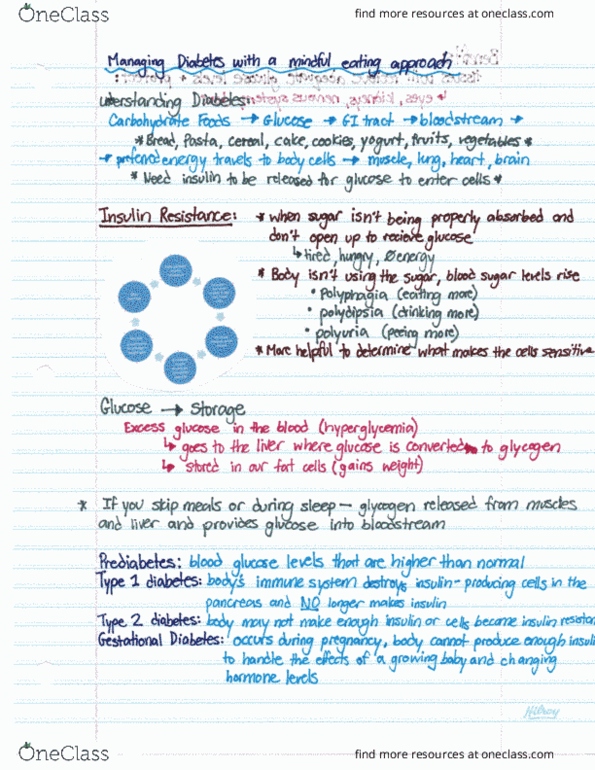 OneClass
find more resources at oneclass.com
Managing Diabetes with a mindful eating approach
understanding Diabetes:
Carbohydrate Foods → Glucose → GI tract → bloodstream →
*Bread, Pasta, cereal, cake, cookies, yogurt, fruits, vegetables *
→ preferred energy travels to body cells → muscle, lung, heart, brain
* Need insulin to be released for glucose to enter cells *
Insulin Resistance: * when sugar isn't being properly absorbed and
don't open up to recieve glucose
↳ tired, hungry, ∅energy
* Body isn't using the sugar, blood sugar levels rise
• Polyphagia (eating more)
• polydipsia (drinking more)
• polyuria (peeing more)
* More helpful to determine what makes the cells sensitive
Glucose → Storage
Excess glucose in the blood (hyperglycemia)
↳ goes to the liver where glucose is converted to glycogen
↳ stored in our fat cells (gains weight)
* If you skip meals or during sleep — glycogen released from muscles
and liver and provides glucose into bloodstream
Prediabetes: blood glucose levels that are higher than normal
Type 1 diabetes: body's immune system destroys insulin-producing cells in the
pancreas and NO longer makes insulin
Type 2 diabetes: body may not make enough insulin or cells become insulin resistan
Gestational Diabetes: occurs during pregnancy, body cannot produce enough insuli
to handle the effects of a growing baby and changing
hormone levels
Hilroy
OneClass
find more resources at oneclass.com